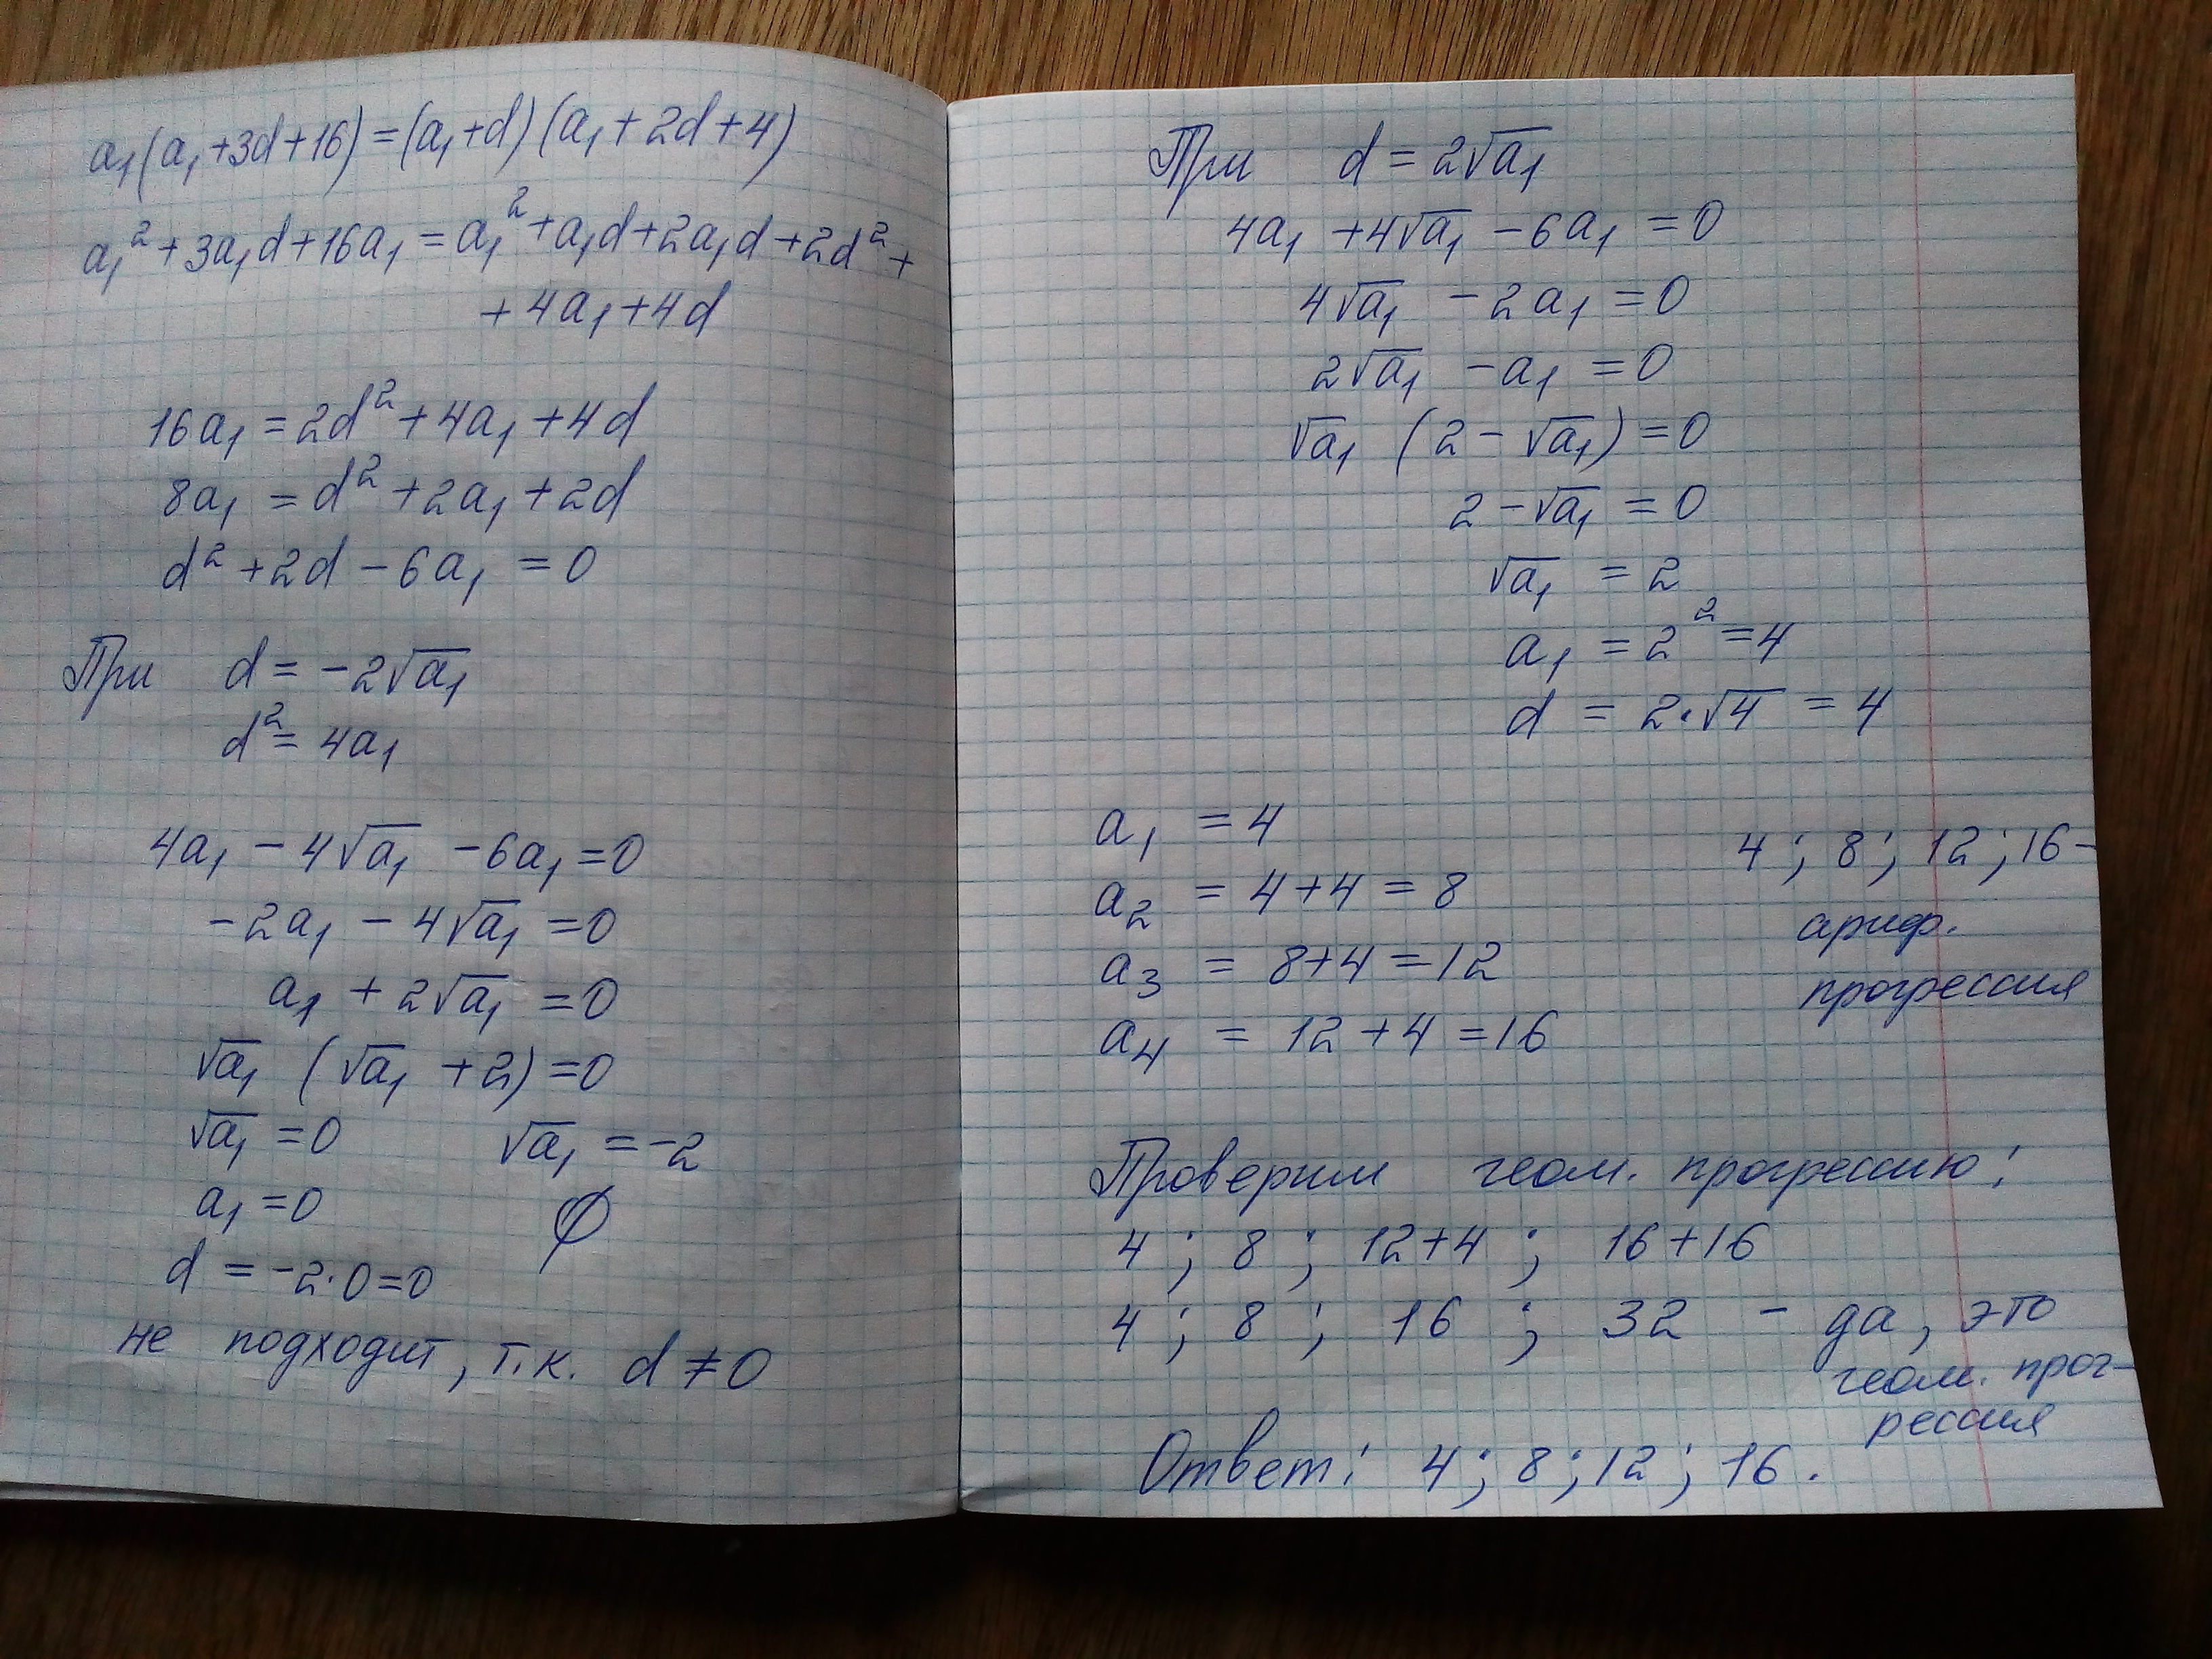 a₁(a₁+3d+16)=(a₁+d)(a₁+2d+4)
a₁²+3a₁d+16a₁=a₁²+a₁d+2a₁d+2d²+
+4a₁+4d
16a₁=2d²+4a₁+4d
8a₁=d²+2a₁+2d
d²+2d-6a₁=0
При d=-2√a₁
d²=4a₁
4a₁-4√a₁-6a₁=0
-2a₁-4√a₁=0
a₁+2√a₁=0
√a₁(√a₁+2)=0
√a₁=0 √a₁=-2
a₁=0 ∅
d=-2·0=0
не подходит, т.к. d≠0
При d=2√a₁
4a₁+4√a₁-6a₁=0
4√a₁-2a₁=0
2√a₁-a₁=0
√a₁(2-√a₁)=0
2-√a₁=0
√a₁=2
a₁=2²=4
d=2·√4=4
a₁=4
a₂=4+4=8
a₃=8+4=12
a₄=12+4=16
4; 8; 12; 16-
ариф.
прогрессия
Проверим геом. прогрессию:
4; 8; 12+4; 16+16
4; 8; 16; 32 - да, это
геом. прог-
рессия
Ответ: 4; 8; 12; 16.